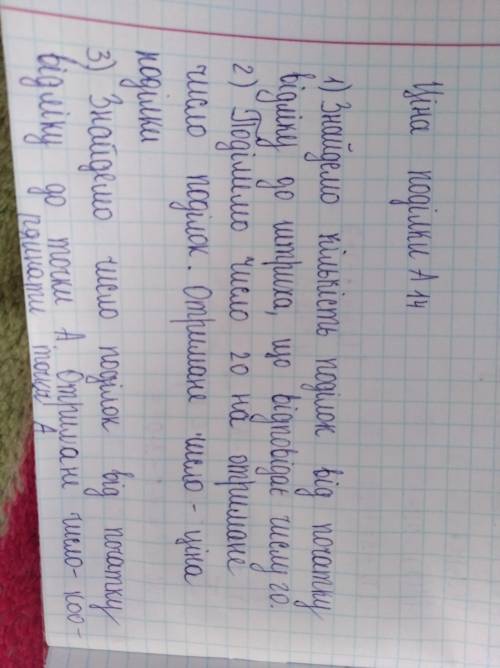 Ціна поділки А 14
1) Знайдемо кількість поділок від початку
відліку до штриха, що відповідає числу 20.
2) Поділимо число 20 на отримане
число поділок. Отримане число - ціна
поділки
3) Знайдемо число поділок від початку
відліку до точки А. Отримане число- коо-
точки А